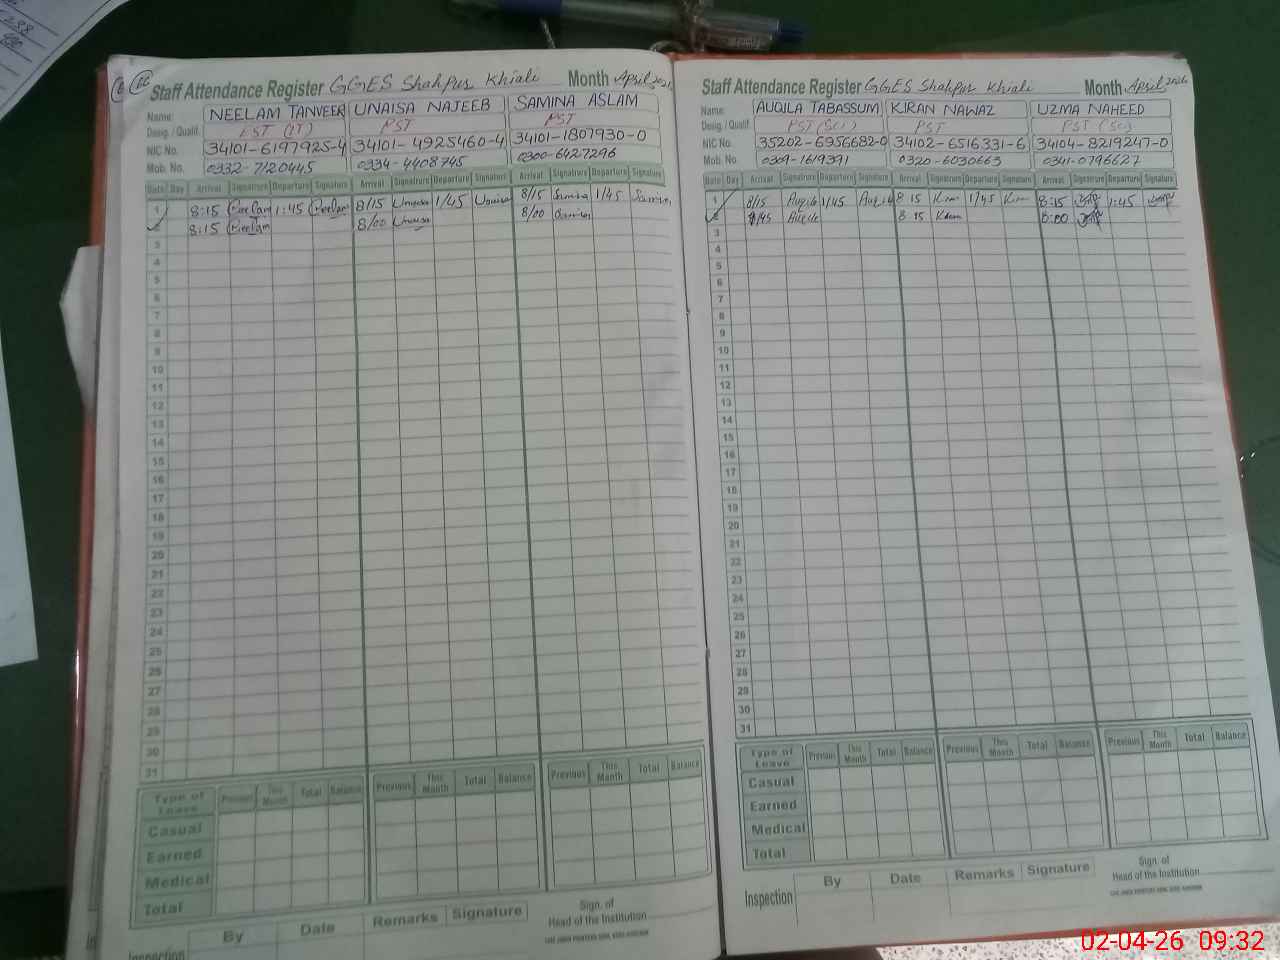 Staff Attendance Register GGES Shahpur Khiali Month April 2026
Name: NEELAM TANVEER UNAISA NAJEEB SAMINA ASLAM
Desig. / Qualif. PST (IT) PST PST
NIC No. 34101-6197925-4 34101-4925460-4 34101-1807930-0
Mob. No. 0332-7120445 0334-4408745 0300-6427296
Date Day Arrival Signature Departure Signature Arrival Signature Departure Signature Arrival Signature Departure Signature
1 8:15 Neelam 1:45 Neelam 8/15 Unaisa 1/45 Unaisa 8/15 Samina 1/45 Samina
2 8:15 Neelam 8/00 Unaisa 8/00 Samina
3
4
5
6
7
8
9
10
11
12
13
14
15
16
17
18
19
20
21
22
23
24
25
26
27
28
29
30
31
Type of Leave Previous This Month Total Balance Previous This Month Total Balance Previous This Month Total Balance
Casual
Earned
Medical
Total
Inspection By Date Remarks Signature Sign. of Head of the Institution
Staff Attendance Register GGES Shahpur Khiali Month April 2026
Name: AUQILA TABASSUM KIRAN NAWAZ UZMA NAHEED
Desig. / Qualif. PST (Sci) PST PST (Sci)
NIC No. 35202-6956682-0 34102-6516331-6 34104-8219247-0
Mob. No. 0309-1619391 0320-6030663 0341-0796627
Date Day Arrival Signature Departure Signature Arrival Signature Departure Signature Arrival Signature Departure Signature
1 8/15 Auqila 1/45 Auqila 8 15 Kiran 1/45 Kiran 8:15 1:45
2 Auqila 8 15 Kiran 8:00
3
4
5
6
7
8
9
10
11
12
13
14
15
16
17
18
19
20
21
22
23
24
25
26
27
28
29
30
31
Type of Leave Previous This Month Total Balance Previous This Month Total Balance Previous This Month Total Balance
Casual
Earned
Medical
Total
Inspection By Date Remarks Signature Sign. of Head of the Institution
02-04-26 09:32